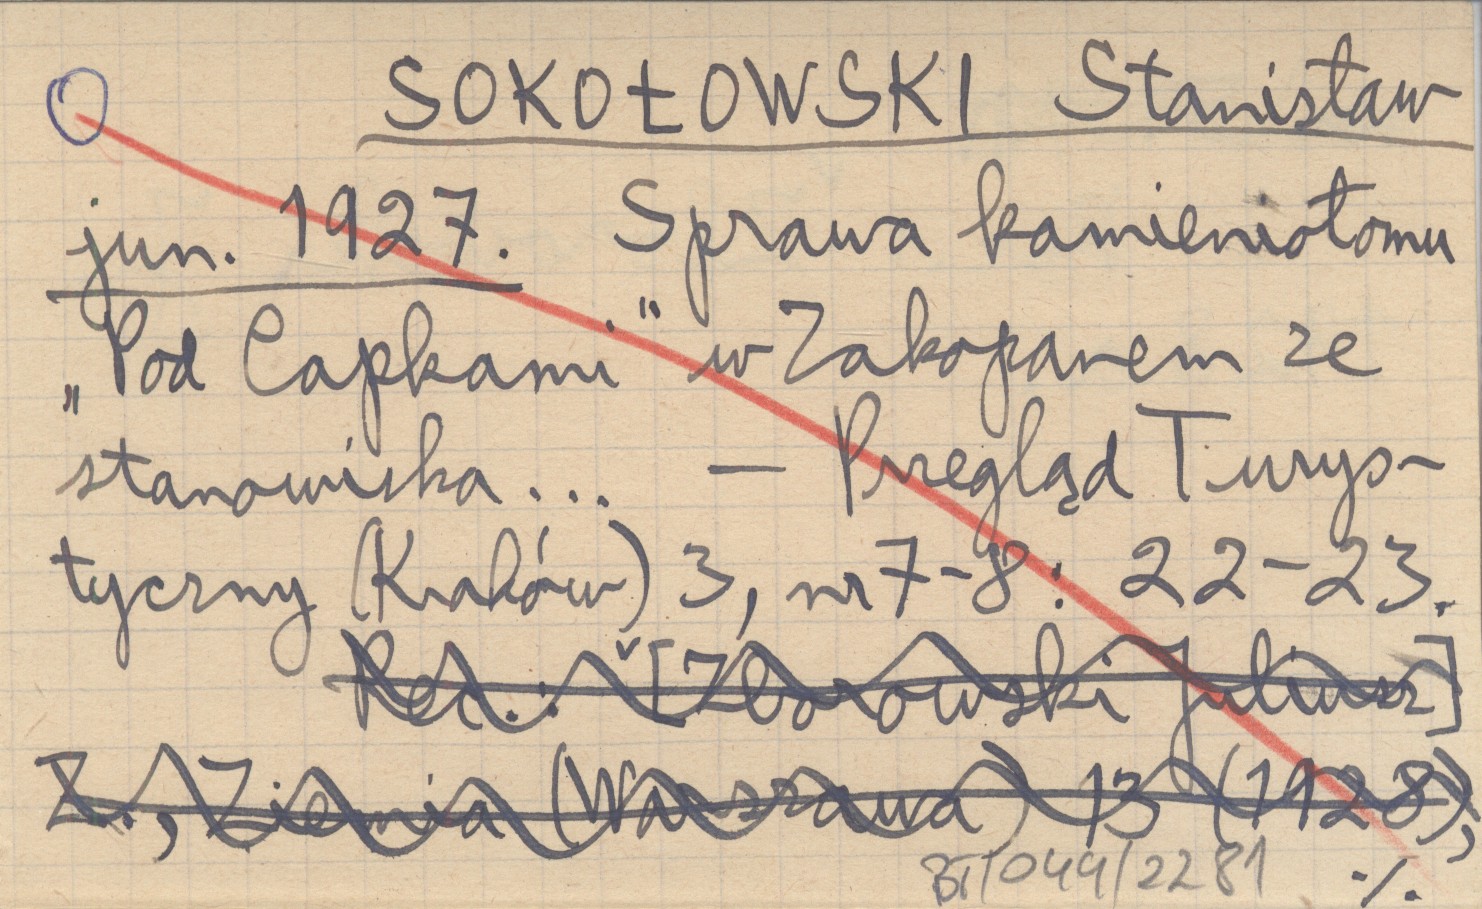 SOKOŁOWSKI Stanisław
jun. 1927. Sprawa kamieniołomu
„Pod Capkami" w Zakopanem ze
stanowiska... — Przegląd Turys-
tyczny (Kraków) 3, nr 7-8: 22-23.
Rec.: [Zborowski Juliusz]
Z., Ziemia (Warszawa) 13 (1928),
BT/044/2281 ·/.